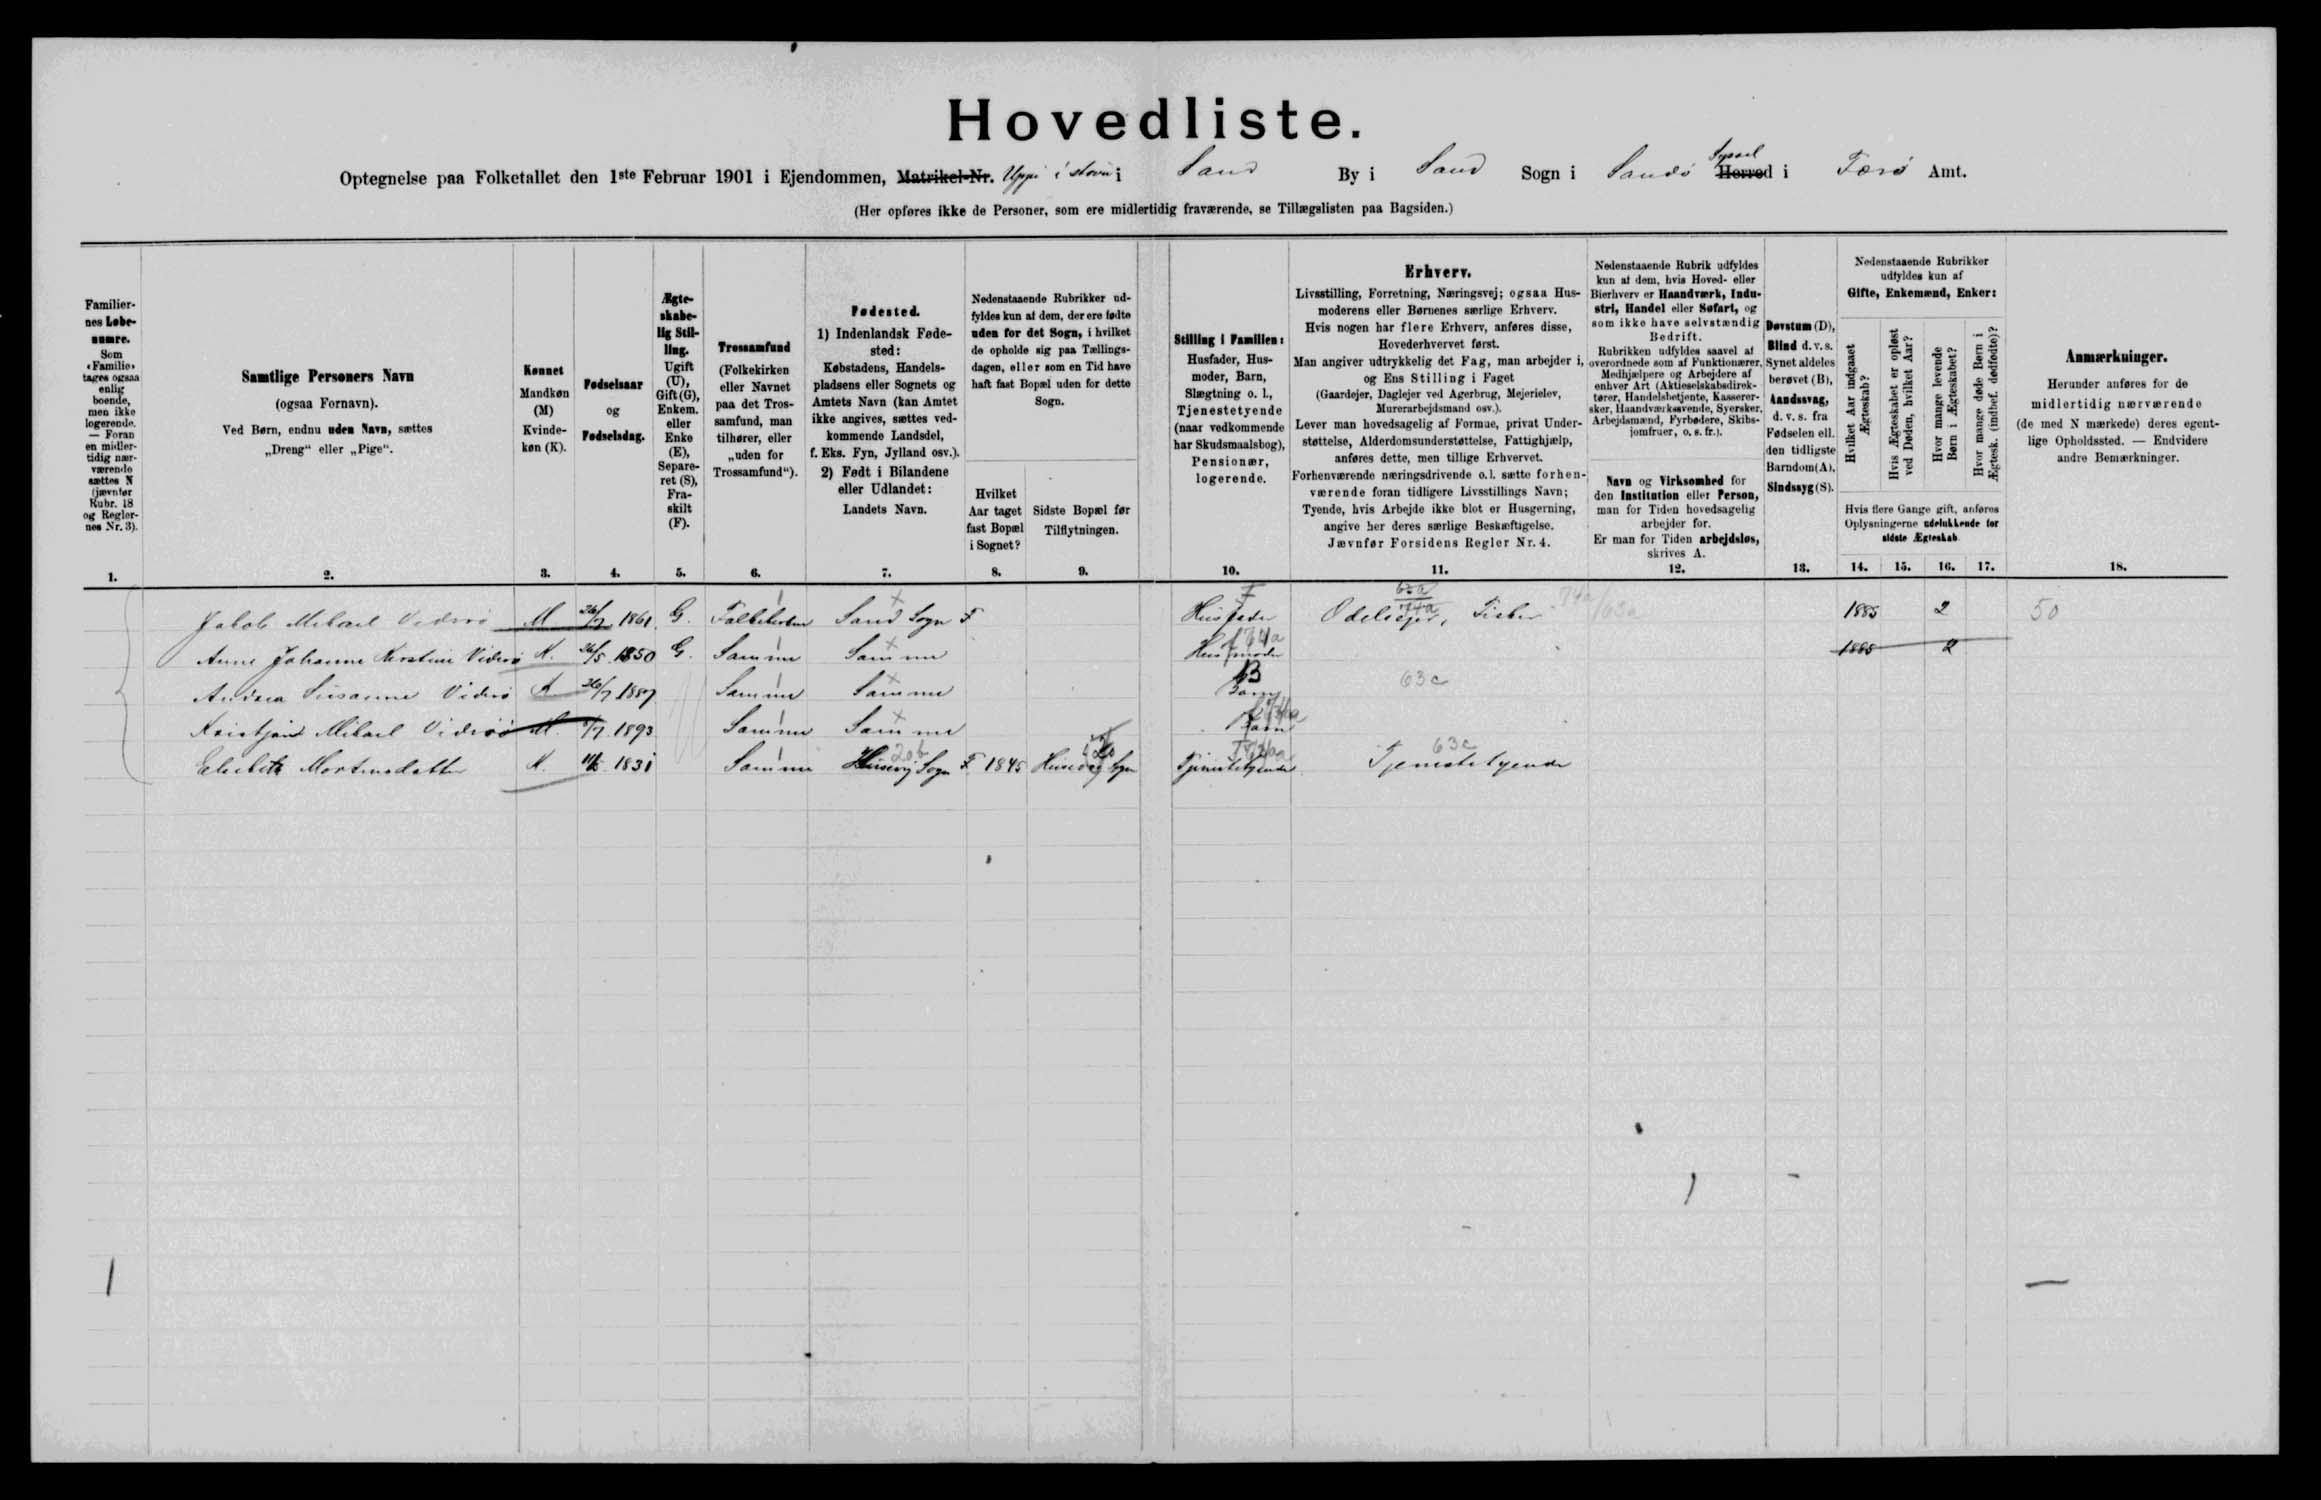 Hovedliste.
Optegnelse paa Folketallet den 1ste Februar 1901 i Ejendommen, Matrikel-Nr. Uppi i stovu i Sand By i Sand Sogn i Sandø Herred Syssel i Færø Amt.
(Her opføres ikke de Personer, som ere midlertidig fraværende, se Tillægslisten paa Bagsiden.)
Familier-
nes Løbe-
numre.
Som
«Familie»
tages ogsaa
enlig
boende,
men ikke
logerende.
— Foran
en midler-
tidig nær-
værende
sættes N
(jævnfør
Rubr. 18
og Regler-
nes Nr. 3).
1.
Samtlige Personers Navn
(ogsaa Fornavn).
Ved Børn, endnu uden Navn, sættes
„Dreng“ eller „Pige“.
2.
Kønnet
Mandkøn
(M)
Kvinde-
køn (K).
3.
Fødselsaar
og
Fødselsdag.
4.
Ægte-
skabe-
lig Stil-
ling.
Ugift
(U),
Gift (G),
Enkem.
eller
Enke
(E),
Separe-
ret (S),
Fra-
skilt
(F).
5.
Trossamfund
(Folkekirken
eller Navnet
paa det Tros-
samfund, man
tilhører, eller
„uden for
Trossamfund“).
6.
Fødested.
1) Indenlandsk Føde-
sted:
Købstadens, Handels-
pladsens eller Sognets og
Amtets Navn (kan Amtet
ikke angives, sættes ved-
kommende Landsdel,
f. Eks. Fyn, Jylland osv.).
2) Født i Bilandene
eller Udlandet:
Landets Navn.
7.
Nedenstaaende Rubrikker ud-
fyldes kun af dem, der ere fødte
uden for det Sogn, i hvilket
de opholde sig paa Tællings-
dagen, eller som en Tid have
haft fast Bopæl uden for dette
Sogn.
Hvilket
Aar taget
fast Bopæl
i Sognet?
8.
Sidste Bopæl før
Tilflytningen.
9.
Stilling i Familien:
Husfader, Hus-
moder, Barn,
Slægtning o. l.,
Tjenestetyende
(naar vedkommende
har Skudsmaalsbog),
Pensionær,
logerende.
10.
Erhverv.
Livsstilling, Forretning, Næringsvej; ogsaa Hus-
moderens eller Børnenes særlige Erhverv.
Hvis nogen har flere Erhverv, anføres disse,
Hovederhvervet først.
Man angiver udtrykkelig det Fag, man arbejder i,
og Ens Stilling i Faget
(Gaardejer, Daglejer ved Agerbrug, Mejerielev,
Murerarbejdsmand osv.).
Lever man hovedsagelig af Formue, privat Under-
støttelse, Alderdomsunderstøttelse, Fattighjælp,
anføres dette, men tillige Erhvervet.
Forhenværende næringsdrivende o. l. sætte forhen-
værende foran tidligere Livsstillings Navn;
Tyende, hvis Arbejde ikke blot er Husgerning,
angive her deres særlige Beskæftigelse.
Jævnfør Forsidens Regler Nr. 4.
11.
Nedenstaaende Rubrik udfyldes
kun af dem, hvis Hoved- eller
Bierhverv er Haandværk, Indu-
stri, Handel eller Søfart, og
som ikke have selvstændig
Bedrift.
Rubrikken udfyldes saavel af
overordnede som af Funktionærer,
Medhjælpere og Arbejdere af
enhver Art (Aktieselskabsdirek-
tører, Handelsbetjente, Kasserer-
sker, Haandværkssvende, Syersker,
Arbejdsmænd, Fyrbødere, Skibs-
jomfruer, o. s. fr.).
Navn og Virksomhed for
den Institution eller Person,
man for Tiden hovedsagelig
arbejder for.
Er man for Tiden arbejdsløs,
skrives A.
12.
Døvstum (D),
Blind d. v. s.
Synet aldeles
berøvet (B),
Aandssvag,
d. v. s. fra
Fødselen ell.
den tidligste
Barndom (A),
Sindssyg (S).
13.
Nedenstaaende Rubrikker
udfyldes kun af
Gifte, Enkemænd, Enker:
Hvilket Aar indgaaet
Ægteskab?
Hvis Ægteskabet er opløst
ved Døden, hvilket Aar?
Hvor mange levende
Børn i Ægteskabet?
Hvor mange døde Børn i
Ægtesk. (indbef. dødfødte)?
Hvis flere Gange gift, anføres
Oplysningerne udelukkende for
sidste Ægteskab.
14. 15. 16. 17.
Anmærkninger.
Herunder anføres for de
midlertidig nærværende
(de med N mærkede) deres egent-
lige Opholdssted. — Endvidere
andre Bemærkninger.
18.
Jakob Mikael Viderø M 26/7 1861 G. Folkekirken Sand Sogn F Husfader Odelsejer, Fisker 74a/63a 1885 2 50
Anne Johanne Kirstine Viderø K. 26/5 1850 G. Samme Samme Husmoder 1885 2
Andrea Susanne Viderø K 26/7 1887 Samme Samme Barn 63c
Kristjan Mikael Viderø M. 1893 Samme Samme Barn
Elsebeth Mortensdatter K. 1831 Samme Husevig Sogn F. 1845 Husevig Sogn Tjenestetyende Tjenestetyende 63c